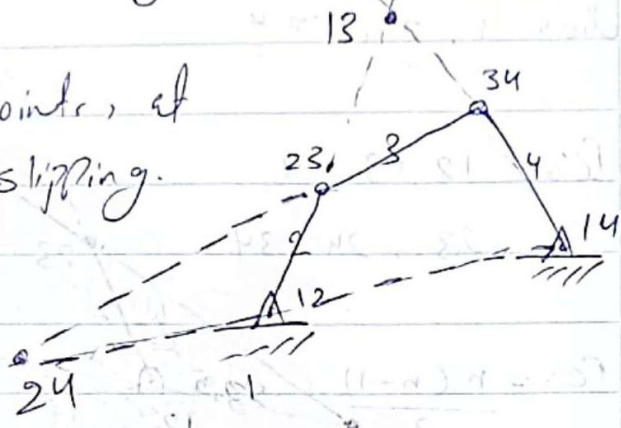 13
34
oints, at
slipping.
23
3
4
2
14
12
24
1